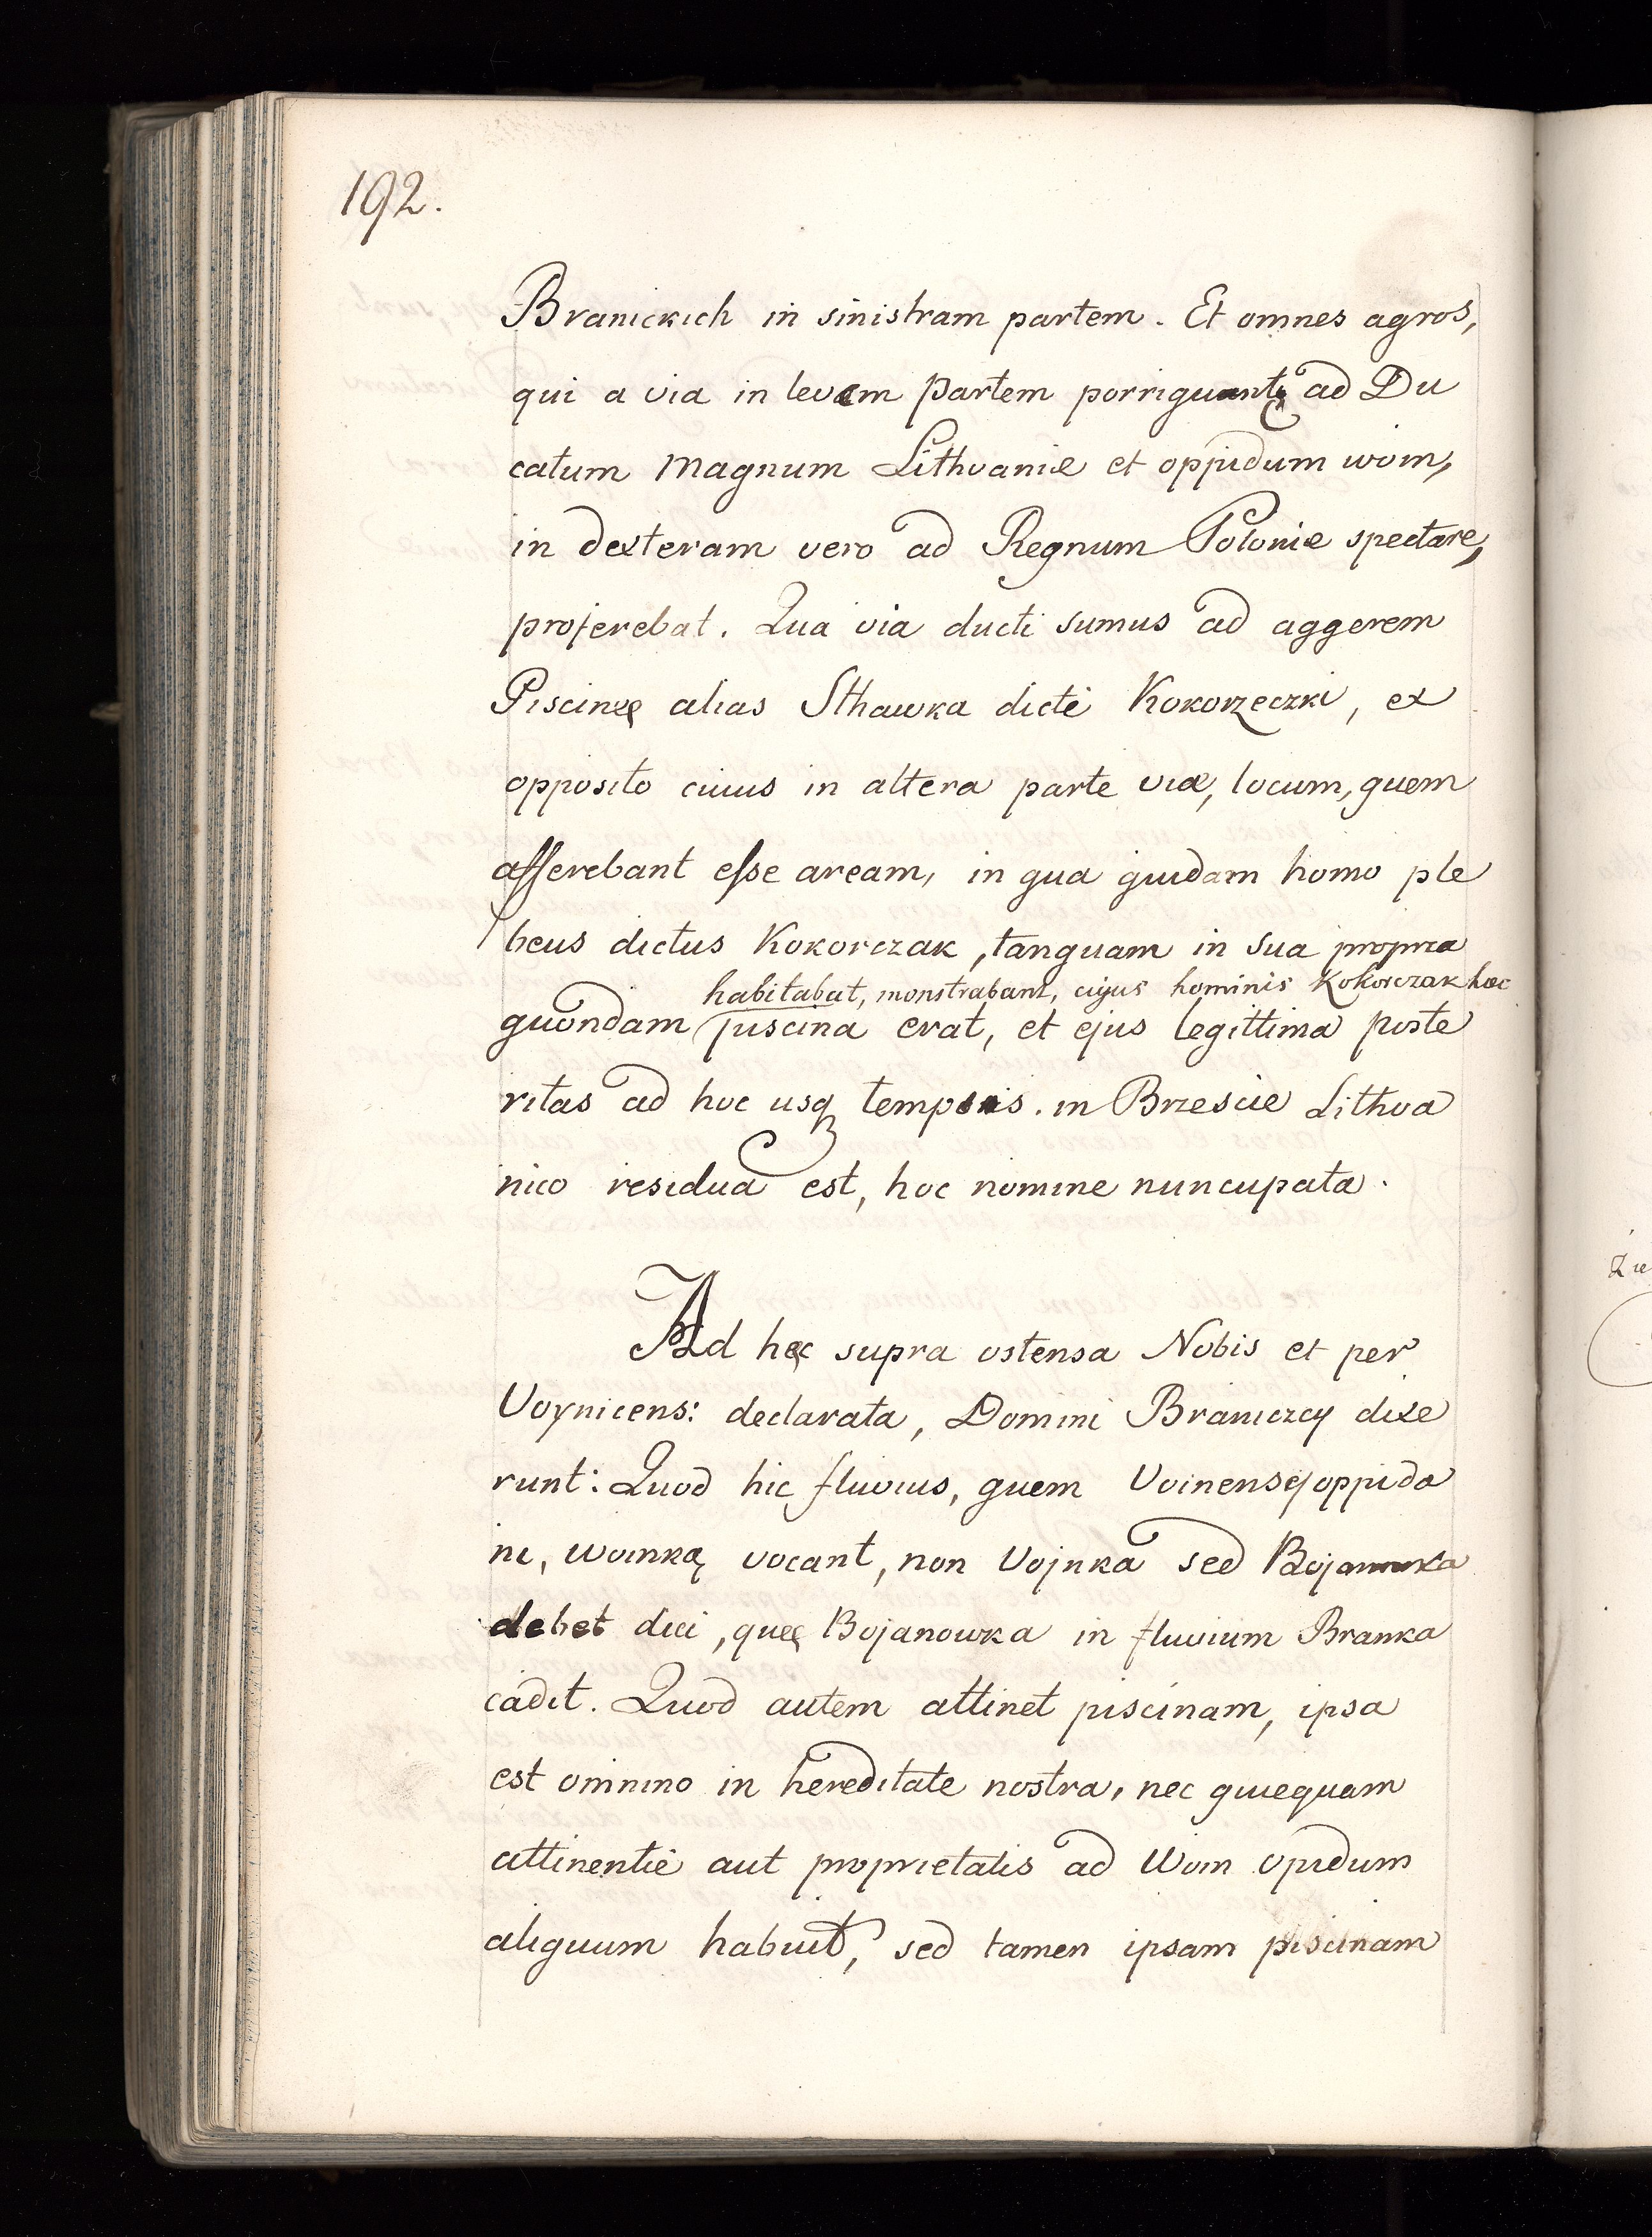 192.
Branickich in sinistram partem. Et omnes agros,
qui a via in levam partem porriguntę ad Du
catum magnum Lithvanie et oppidum woin,
in dexteram vero ad Regnum Polonie spectare,
proferebat. Qua via ducti sumus ad aggerem
Piscineę alias Sthawka dicte Kokorzeczki, ex
opposito cuius in altera parte viæ, locum, quem
asserebant esse aream, in qua quidam homo ple
beus dictus Kokorczak, tanquam in sua propria
habitabat, monstrabant, cujus hominis Kokorczak hæc
quondam piscina erat, et ejus legittima poste
ritas ad hoc usq temporis. in Brzescie Lithva
nico residua est, hoc nomine nuncupata.
Ad hęc supra ostensa Nobis et per
Voynicens: declarata, Domini Braniczcy dixe
runt: Quod hic fluvius, quem Voinensej oppida
ni, woinką vocant, non Vojnka sed Bojanowka
debet dici, queę Bojanowka in fluvium Branka
cadit. Quod autem attinet piscinam, ipsa
est omnino in hereditate nostra, nec quiequam
attinentie aut proprietatis ad Woin opidum
aliquum habuit, sed tamen ipsam piscinam